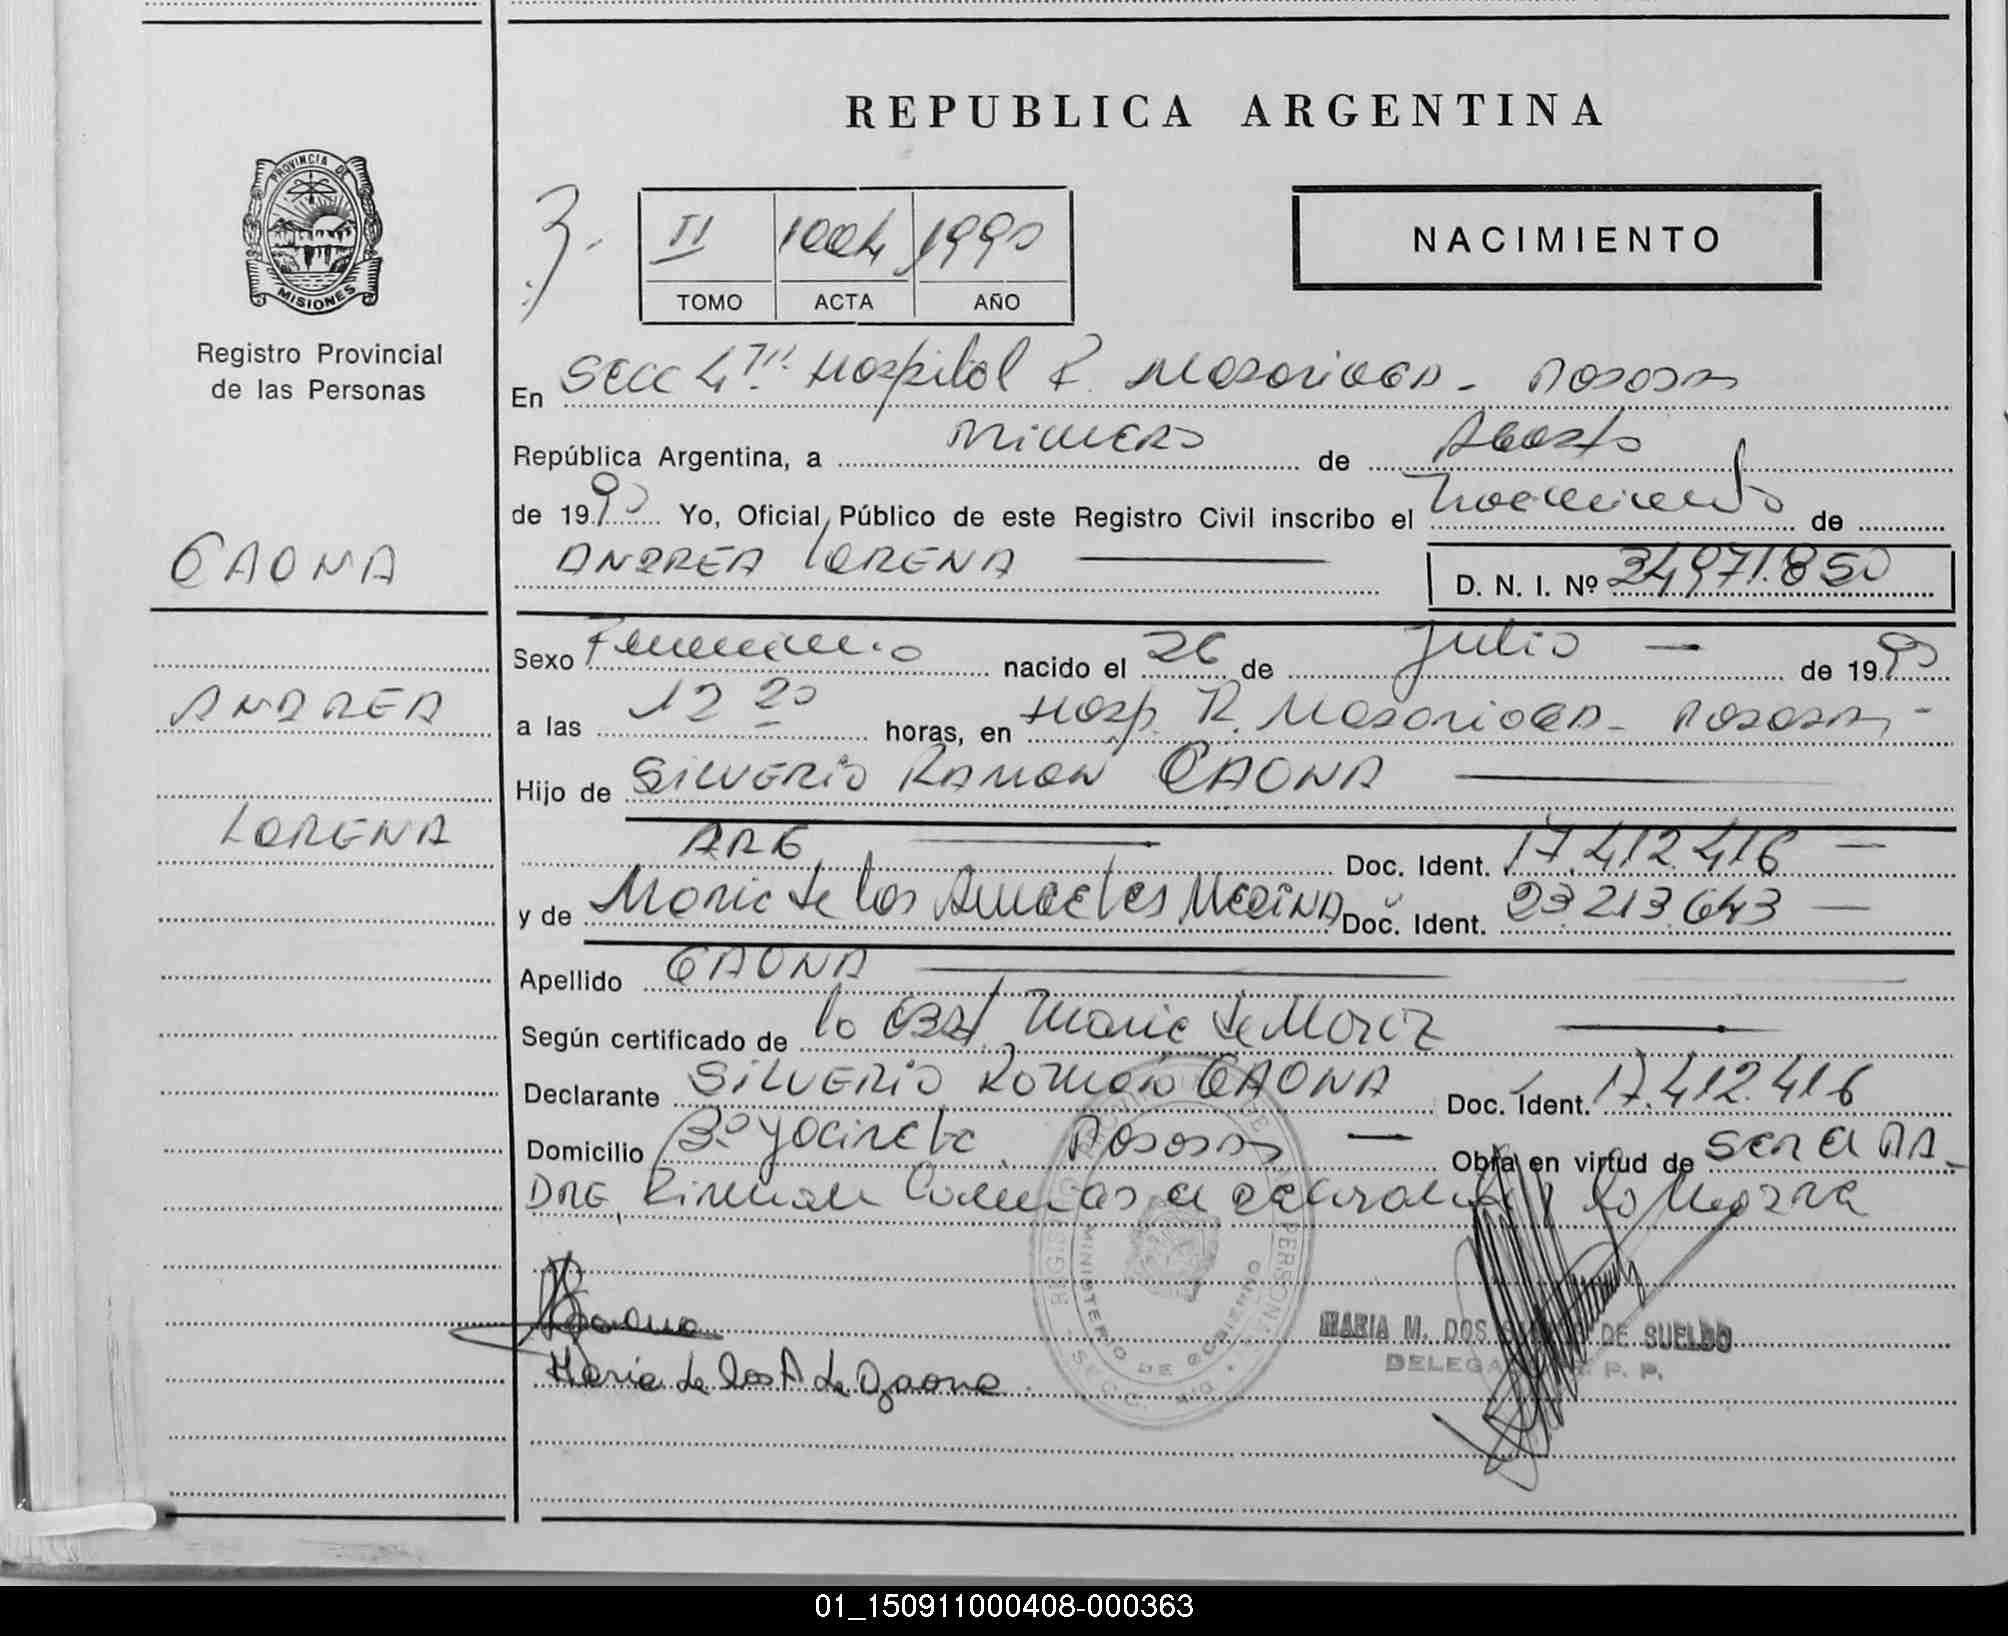 REPUBLICA ARGENTINA
PROVINCIA DE
MISIONES
Registro Provincial
de las Personas
II 1004 1990
TOMO ACTA AÑO
NACIMIENTO
En Secc 4ta Hospital R. Madariaga - Posadas
República Argentina, a Primero de Agosto
de 1990 Yo, Oficial Público de este Registro Civil inscribo el Nacimiento de
GAONA
ANDREA LORENA
D. N. I. Nº 34.971.850
Sexo Femenino nacido el 26 de Julio de 1990
ANDREA
a las 12 20 horas, en Hosp. R. Madariaga - Posadas -
Hijo de SILVERIO RAMON GAONA
LORENA
ARG Doc. Ident. 17.412.416
y de Maria de los Angeles MEDINA Doc. Ident. 23.213.643
Apellido GAONA
Según certificado de la Obst. Maria de
Declarante SILVERIO Ramon GAONA Doc. Ident. 17.412.416
Domicilio Bº Yacireta Posadas Obra en virtud de ser el PA-
DRE, Firman el declarante y la Madre
Gaona
MARIA M. DOS DE SUELDO
DELEGA R. P. P.
Maria de los A de Gaona
MINISTERIO DE GOBIERNO
01_150911000408-000363